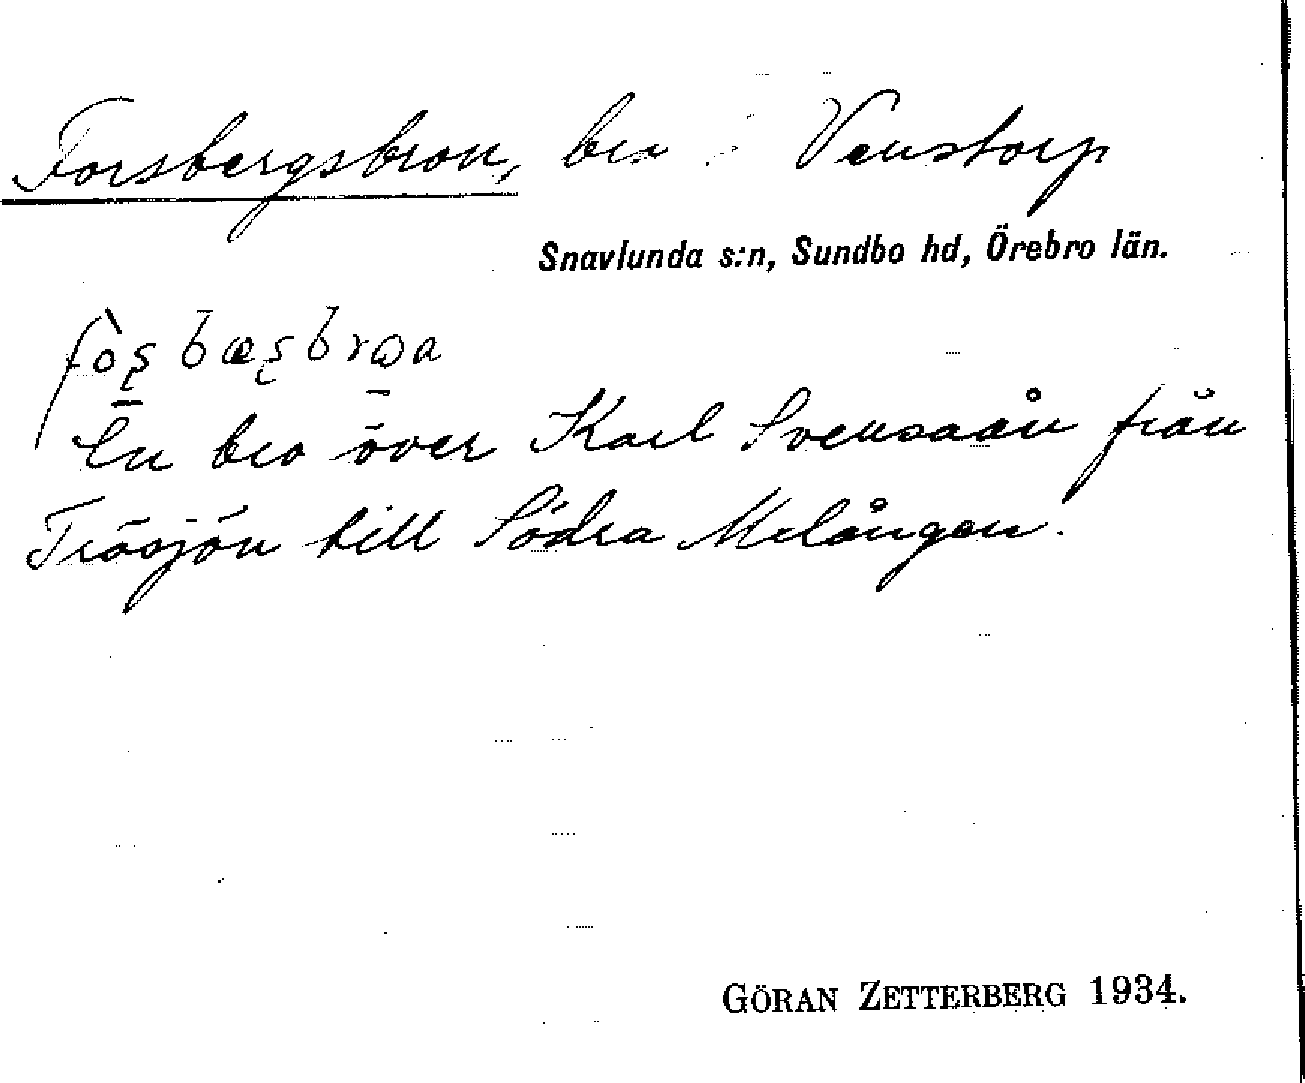 Forsbergsbron, bro i Venstorp
Snavlunda s:n, Sundbo hd, Örebro län.
En bro över Karl Svensaån från
Trösjön till Södra Melången.
GÖRAN ZETTERBERG 1934.